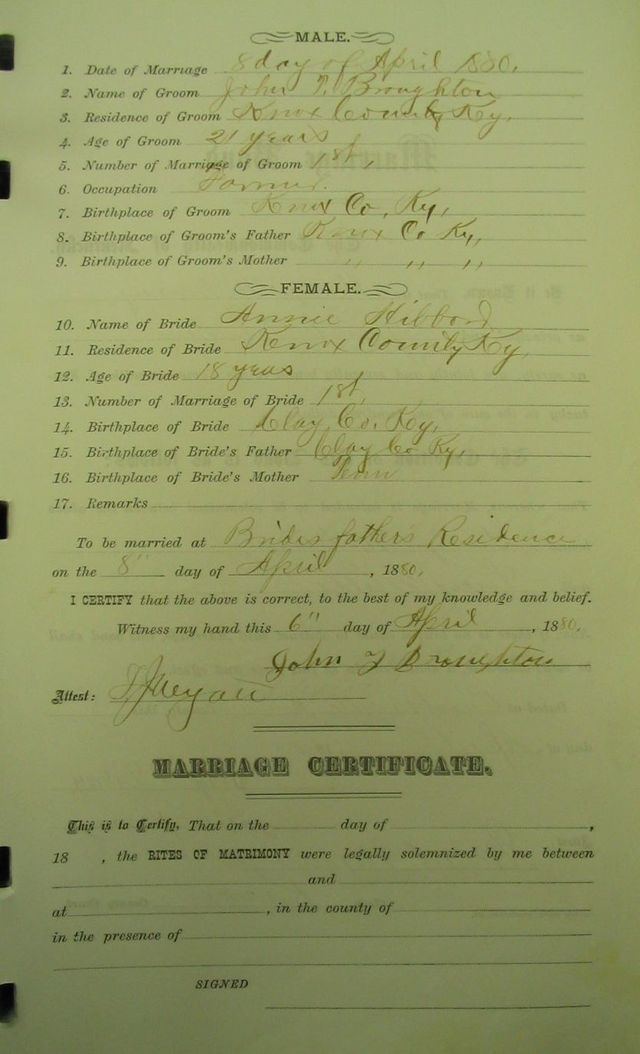 MALE.
1. Date of Marriage 8 day of April 1880.
2. Name of Groom John T. Broughton
3. Residence of Groom Knox County Ky.
4. Age of Groom 21 years
5. Number of Marriage of Groom 1st,
6. Occupation Farmer.
7. Birthplace of Groom Knox Co, Ky,
8. Birthplace of Groom's Father Knox Co Ky,
9. Birthplace of Groom's Mother " " "
FEMALE.
10. Name of Bride Annie Hibbard
11. Residence of Bride Knox County Ky
12. Age of Bride 18 years
13. Number of Marriage of Bride 1st,
14. Birthplace of Bride Clay, Co. Ky,
15. Birthplace of Bride's Father Clay Co Ky,
16. Birthplace of Bride's Mother Tenn
17. Remarks
To be married at Brides father's Residence
on the 8" day of April, 1880.
I CERTIFY that the above is correct, to the best of my knowledge and belief.
Witness my hand this 6" day of April, 1880.
John T Broughton
Attest:
MARRIAGE CERTIFICATE.
This is to Certify, That on the day of ,
18 , the RITES OF MATRIMONY were legally solemnized by me between
and
at , in the county of
in the presence of
SIGNED